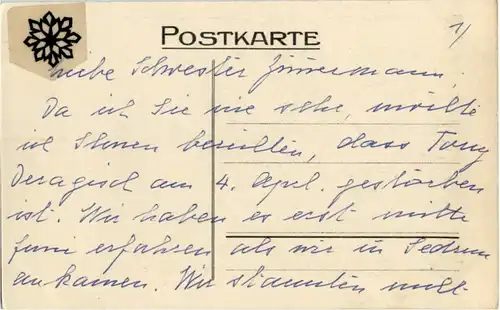 1/
POSTKARTE
Liebe Schwester Zimmermann,
Da ich Sie nie sehe, möchte
ich Ihnen berichten, dass Tony
Deragisch am 4. Apl. gestorben
ist. Wir haben es erst mitte
Juni erfahren als wir in Sedrun
ankamen. Wir staunten